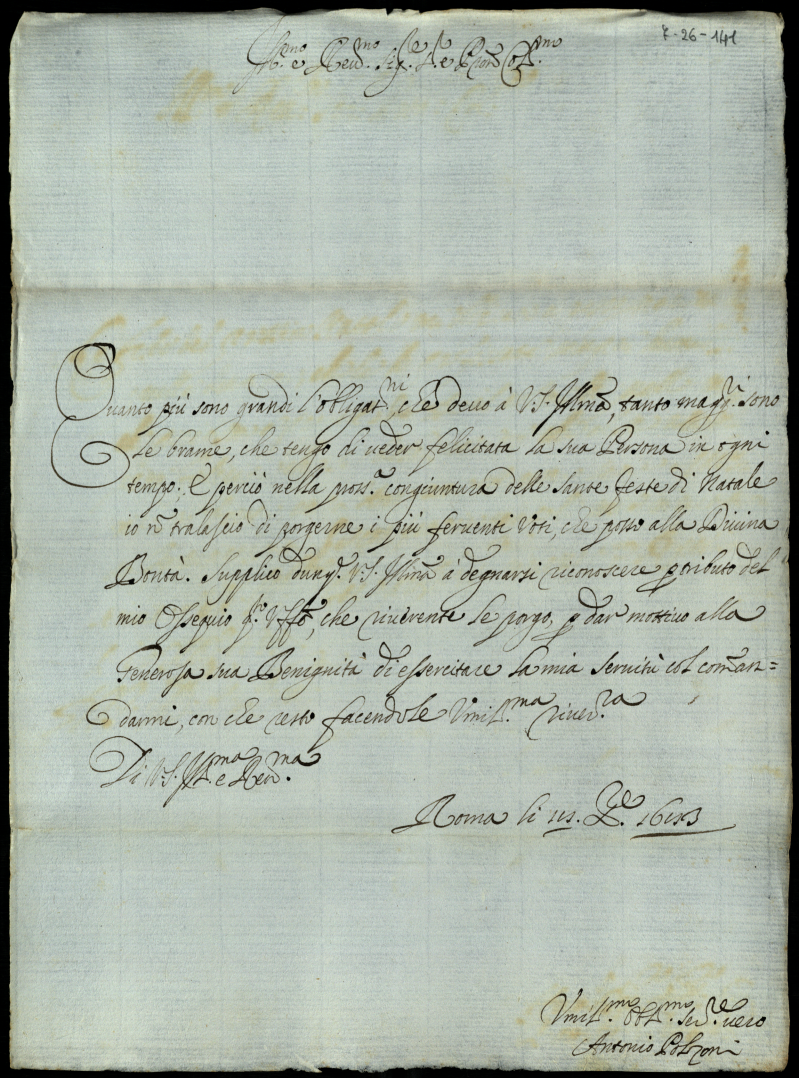 7-26-141
Ill.mo e Reu.mo Sig.re S.re e Pron Col.mo
Quanto più sono grandi l'obligat.ni, che deuo à V.S. Illma, tanto magg.ri sono
le brame, che tengo di ueder felicitata la sua Persona in ogni
tempo. E perciò nella pross.a congiuntura delle sante feste di Natale
io nō tralascio di porgerne i più feruenti Voti, che posso alla Diuina
Bontà. Supplico dunq. V.S. Illma à degnarsi riconoscere p tributo del
mio Ossequio q.to Uffo, che riuerente le porgo, p dar mottiuo alla
Generosa sua Benignità di essercitare la mia seruitù col coman=
darmi, con che resto facendole Vmil.ma riuer.za
Di V.S. Ill.ma e Reu.ma
Roma li
Vmil.mo Obl.mo ser.re uero
Antonio Polzoni